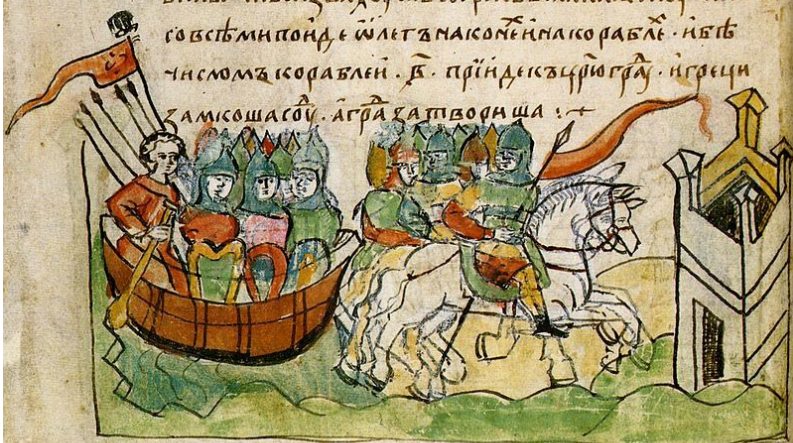 со всѣми поиде ѡлегъ на конеⷯ и на кораблеⷯ · и бѣ
числомъ кораблеи · в҃ · прїиде къ цр҃югра҃ · и греци
замкоша соуⷣ · а граⷣ затвориша :~